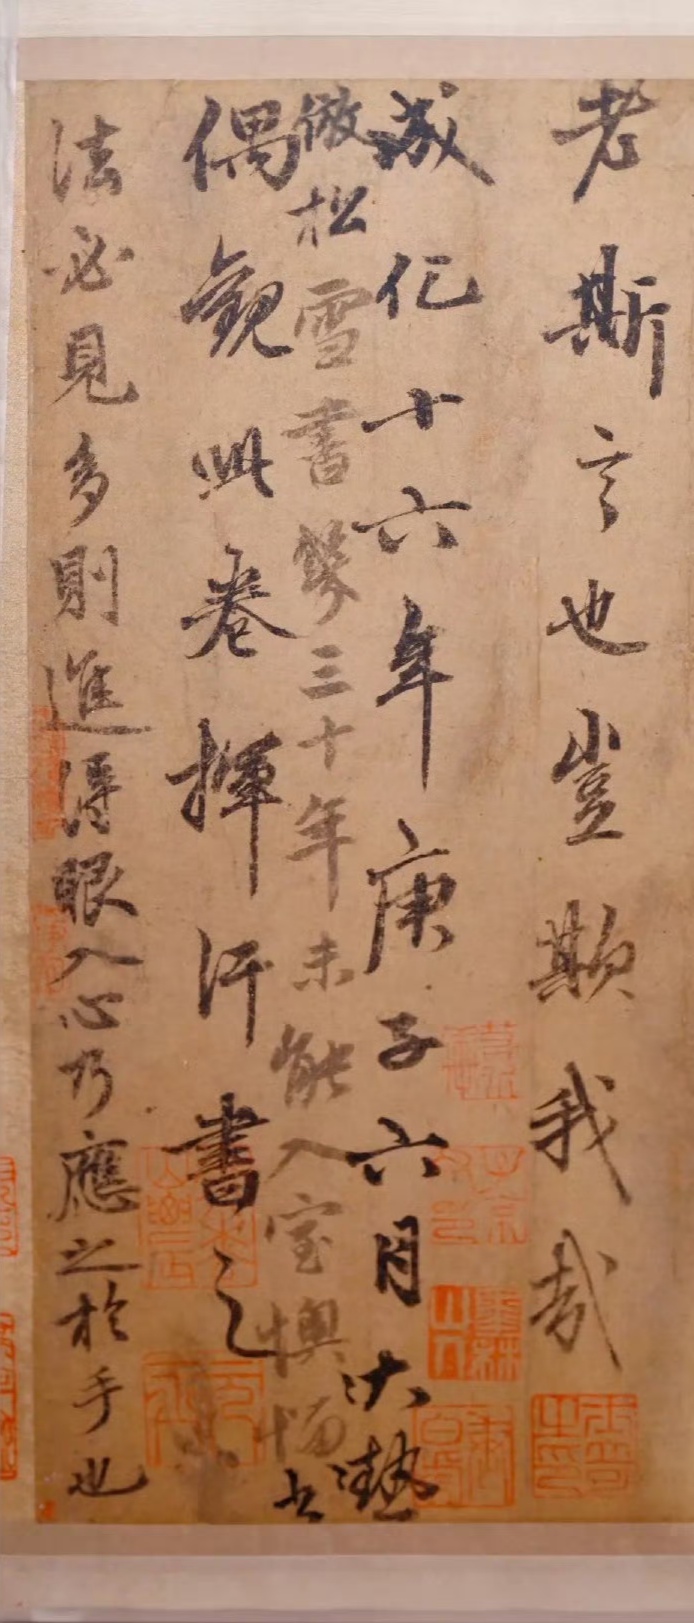 老斯言也豈欺我哉
成化十六年庚子六月大熱
倣松雪書幾三十年未能入室懊惱
偶觀此卷揮汗書之
法必見多則進得眼入心乃應之於手也